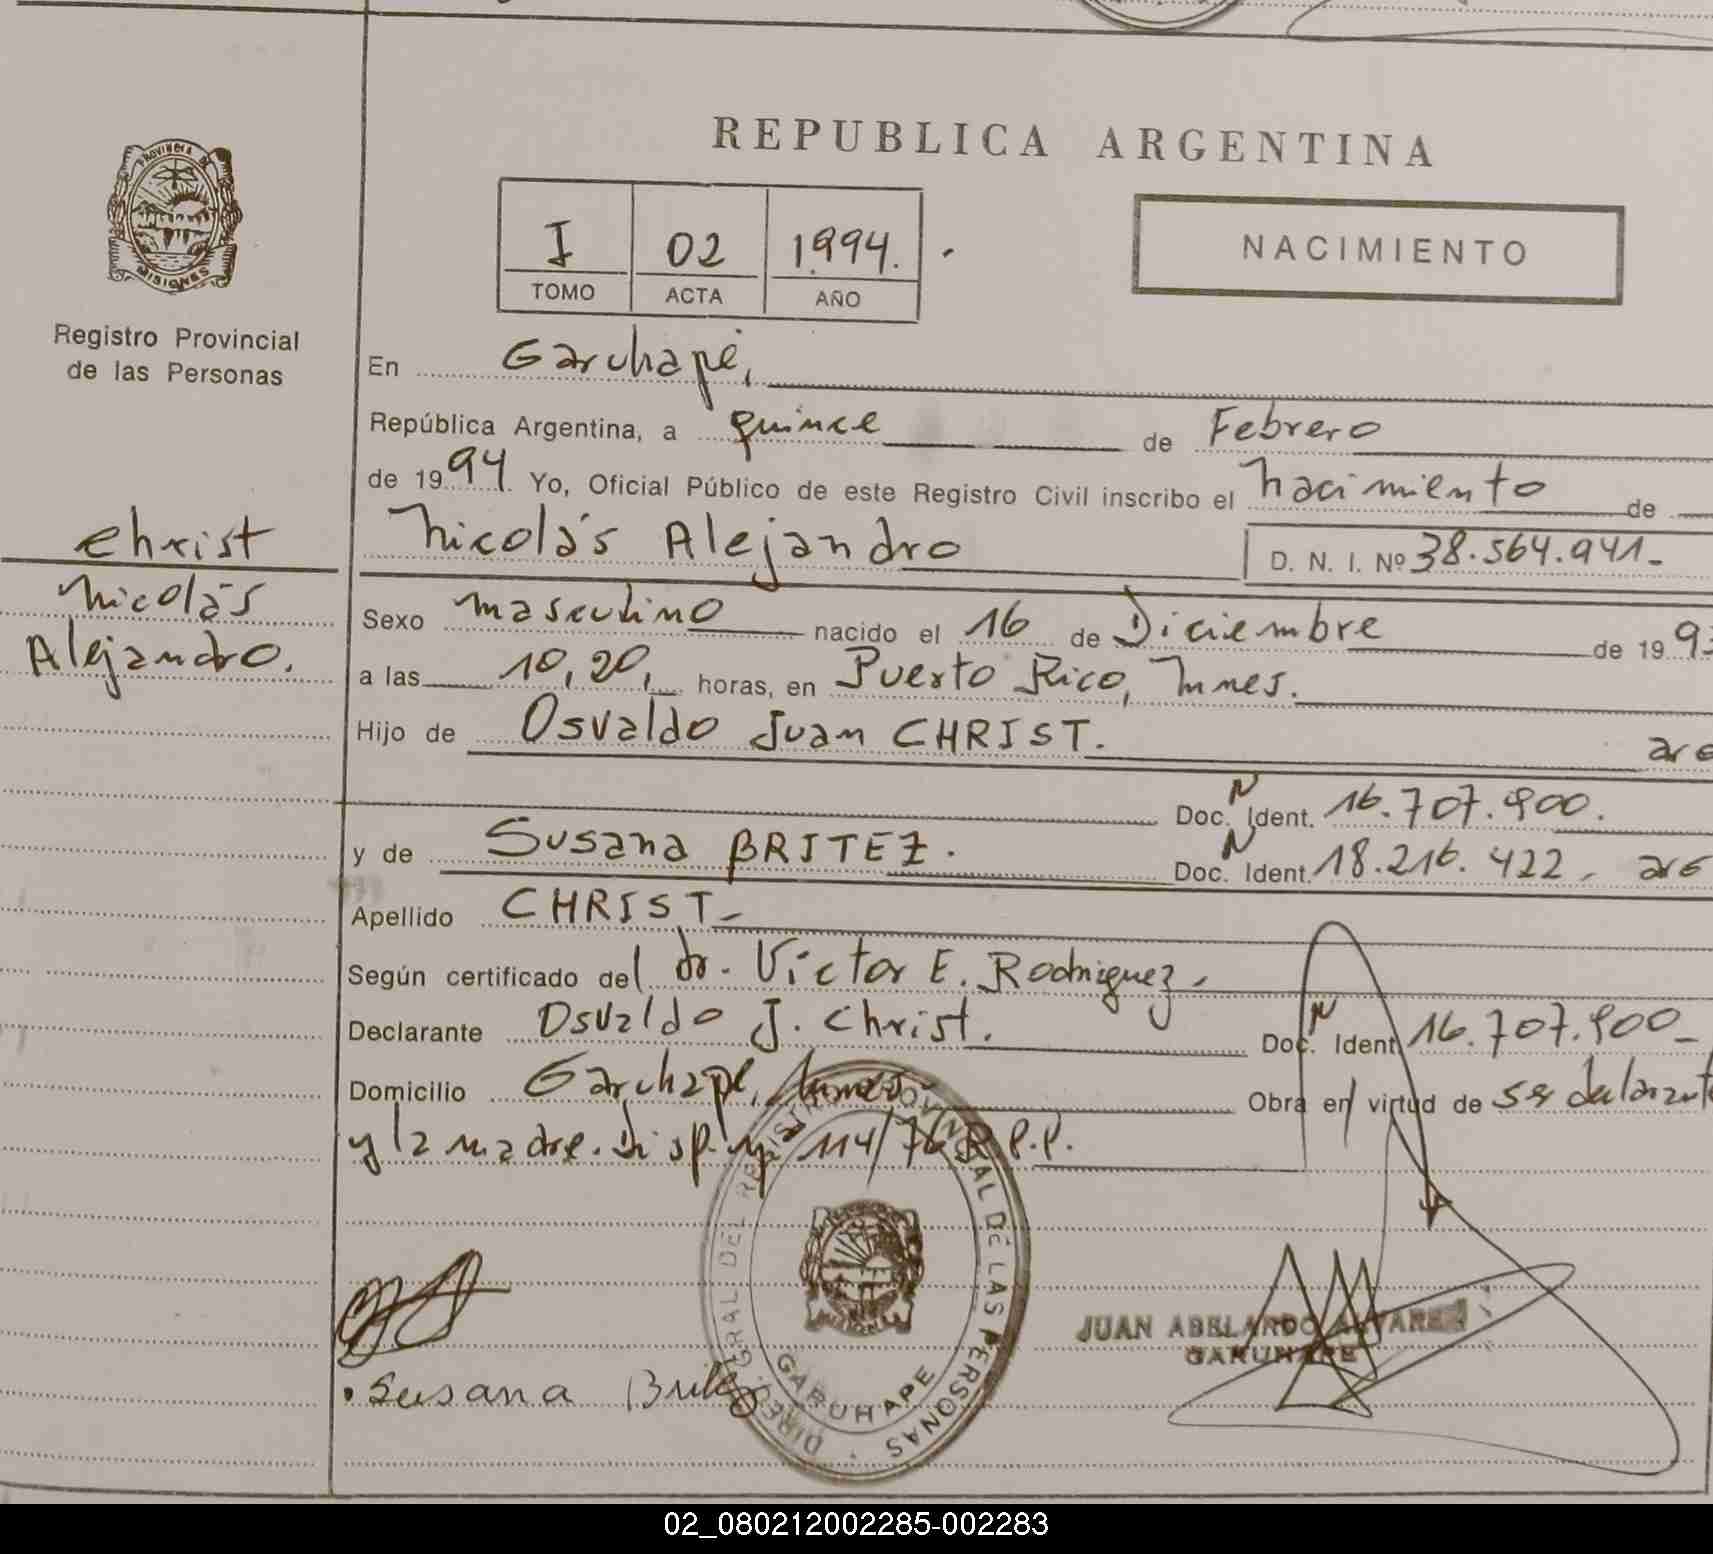 REPUBLICA ARGENTINA
PROVINCIA DE MISIONES
I 02 1994.
TOMO ACTA AÑO
NACIMIENTO
Registro Provincial
de las Personas
Christ
Nicolás
Alejandro.
En Garuhapé,
República Argentina, a quince de Febrero
de 1994. Yo, Oficial Público de este Registro Civil inscribo el nacimiento de
Nicolás Alejandro D. N. I. Nº 38.564.941-
Sexo masculino nacido el 16 de Diciembre de 19 93
a las 10,20, horas, en Puerto Rico, Mnes.
Hijo de Osvaldo Juan CHRIST. arg
Doc. N Ident. 16.707.900.
y de Susana BRITEZ. Doc. N Ident. 18.216.422- arg
Apellido CHRIST-
Según certificado del dr. Victor E. Rodriguez,
Declarante Osvaldo J. Christ. Doc. N Ident 16.707.900-
Domicilio Garuhapé, Obra en virtud de ser declarante
y la madre. Disp. Nº 114/76 R.P.P.
DIREC. GRAL DEL REGISTRO PROVINCIAL DE LAS PERSONAS
GARUHAPE
JUAN ABELARDO ALVAREZ
GARUHAPE
. Susana Britez
02_080212002285-002283